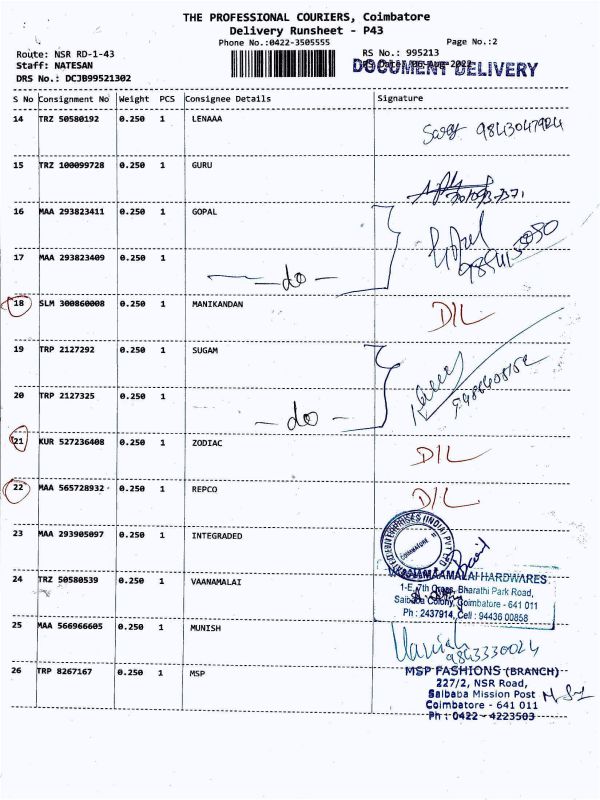 THE PROFESSIONAL COURIERS, Coimbatore
Delivery Runsheet - P43
Phone No.:0422-3505555
Page No.:2
Route: NSR RD-1-43
RS No.: 995213
Staff: NATESAN
DOCUMENT DELIVERY
DRS No.: DCJB99521302
S No Consignment No Weight PCS Consignee Details Signature
14 TRZ 50580192 0.250 1 LENAAA
15 TRZ 100099728 0.250 1 GURU
16 MAA 293823411 0.250 1 GOPAL
17 MAA 293823409 0.250 1
— do —
18 SLM 300860008 0.250 1 MANIKANDAN D/L
19 TRP 2127292 0.250 1 SUGAM
20 TRP 2127325 0.250 1
— do —
21 KUR 527236408 0.250 1 ZODIAC D/L
22 MAA 565728932 0.250 1 REPCO D/L
23 MAA 293905097 0.250 1 INTEGRADED
COIMBATORE
24 TRZ 50580539 0.250 1 VAANAMALAI
HARDWARES
1-E, 7th Cross, Bharathi Park Road,
Saibaba Colony, Coimbatore - 641 011
Ph : 2437914, Cell : 94436 00858
25 MAA 566966605 0.250 1 MUNISH
9843330024
26 TRP 8267167 0.250 1 MSP
MSP FASHIONS (BRANCH)
227/2, NSR Road,
Saibaba Mission Post
Coimbatore - 641 011
Ph : 0422 - 4223503